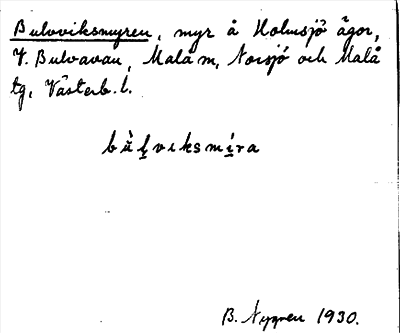 Bulvviksmyren, myr å Holmsjö ägor,
V. Bulvavan, Malå m, Norsjö och Malå
tg, Västerb. l.
bäl̥viksmi̱ra
B. Nygren 1930.